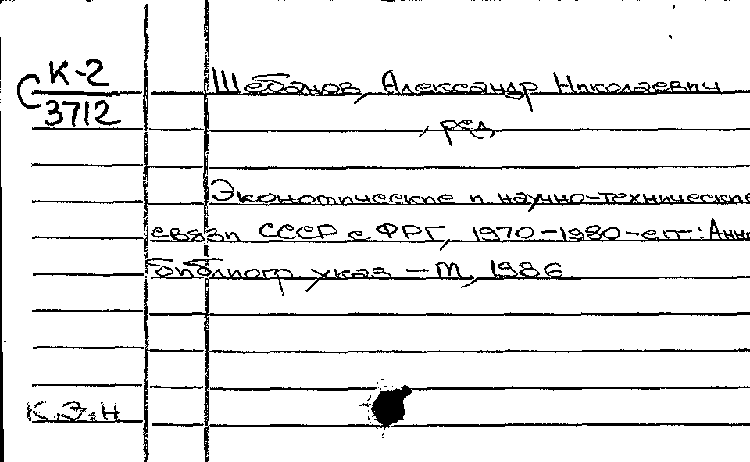 С К-2
3712
Шебанов, Александр Николаевич
, ред.
Экономические и научно-технические
связи СССР с ФРГ, 1970-1980-е гг.: Анн.
библиогр. указ. - М., 1986
К.Э.Н